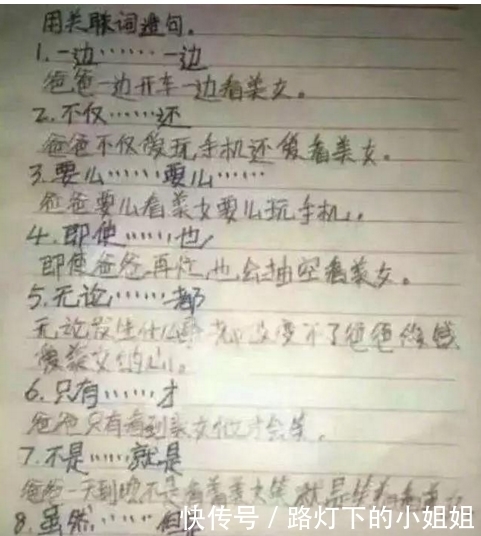 用关联词造句。
1.一边……一边
爸爸一边开车一边看美女。
2.不仅……还
爸爸不仅爱玩手机还爱看美女。
3.要么……要么……
爸爸要么看美女要么玩手机。
4.即使……也
即使爸爸再忙,也会抽空看美女。
5.无论……都
无论发生什么 都 变不了爸爸
爱美女的心。
6.只有……才
爸爸只有看到美女他才会笑。
7.不是……就是
爸爸一天到晚不是看着美女笑就是
8.虽然……但是
快传号/路灯下的小姐姐